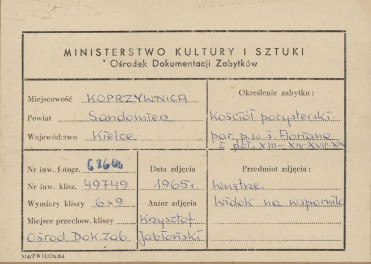 MINISTERSTWO KULTURY I SZTUKI
Ośrodek Dokumentacji Zabytków
Miejscowość KOPRZYWNICA
Powiat Sandomierz
Województwo Kielce
Określenie zabytku:
Kościół pocysterski
par. p.w. ś. Floriana
z poł. XIII-XIV-XVII-XX
Nr inw. fotogr.
Nr inw. klisz. 49749
Wymiary kliszy 6×9
Miejsce przechow. kliszy
Ośrod. Dok. Zab.
Data zdjęcia
1965r.
Autor zdjęcia
Krzysztof
Jabłoński
Przedmiot zdjęcia:
wnętrze
widok na wspornik